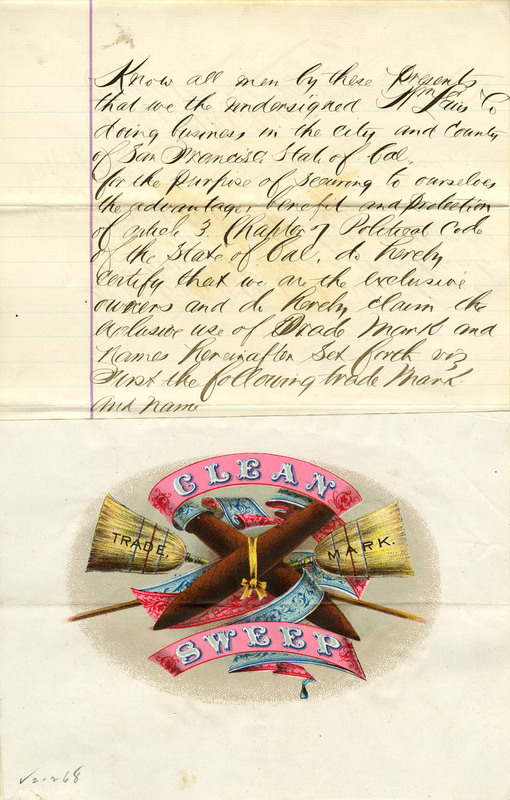 Know all men by these Presents
that we the undersigned Wm & Co
doing business in the city and County
of San Francisco State of Cal,
for the purpose of securing to ourselves
the advantages, benefit and protection
of article 3, Chapter 7 Political Code
of the State of Cal, do hereby
certify that we are the exclusive
owners and do hereby claim the
exclusive use of Trade Mark and
names hereinafter set forth viz
First the following trade Mark
and name
CLEAN
TRADE MARK.
SWEEP
V2-268